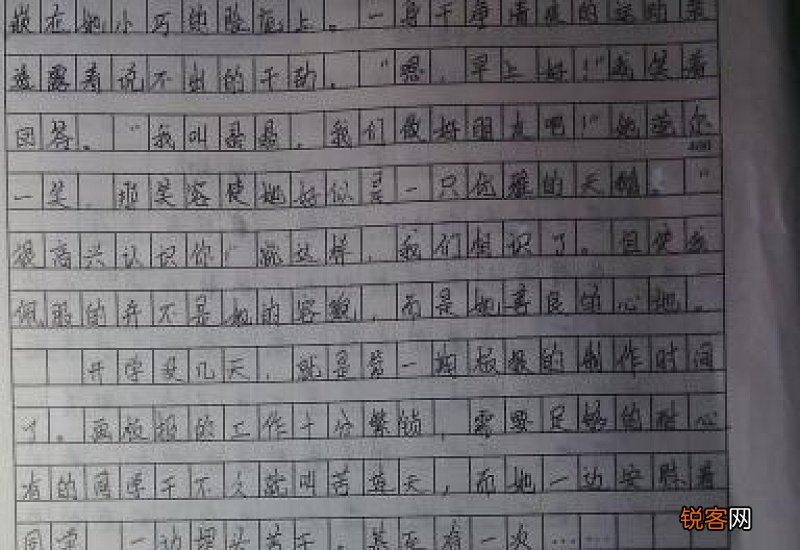 嵌在她小巧的脸庞上。一身干净清爽的运动装
透露着说不出的干劲。“嗯，早上好！”我笑着
回答。“我叫晶晶，我们做好朋友吧！”她莞尔
400
一笑，那笑容使她好似是一只优雅的天鹅。“
很高兴认识你！”就这样，我们相识了。但使我
佩服的并不是她的容貌，而是她善良的心地。
开学没几天，就是第一期板报的制作时间
了。画板报的工作十分繁琐，需要足够的耐心
有的同学干不久就叫苦连天，而她一边安慰着
同学，一边埋头苦干。甚至有一次……
锐客网